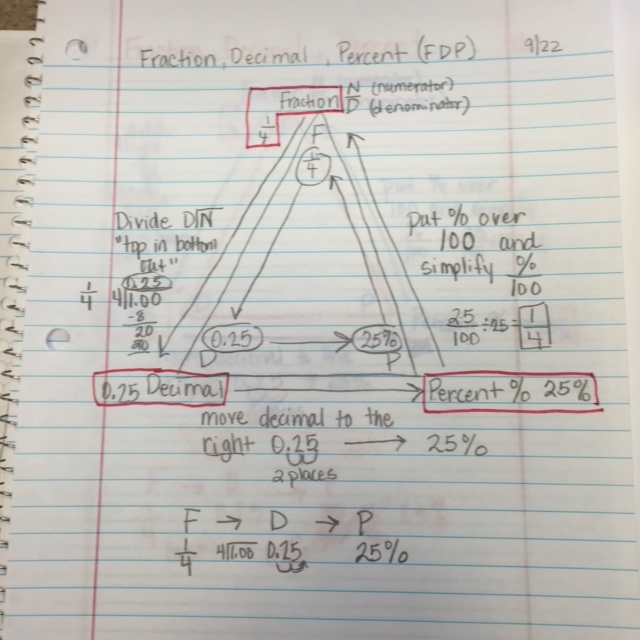 Fraction, Decimal, Percent (FDP) 9/22
Fraction N/D (numerator) (denominator)
1/4
F
1/4
Divide D√N
"top in bottom
out"
0.25
1/4 4√1.00
-8
20
20
Put % over
100 and
simplify %/100
25/100 ÷ 25 = 1/4
0.25 → 25%
D P
0.25 Decimal → Percent % 25%
move decimal to the
right 0.25 → 25%
2 places
F → D → P
1/4 4√1.00 0.25 25%